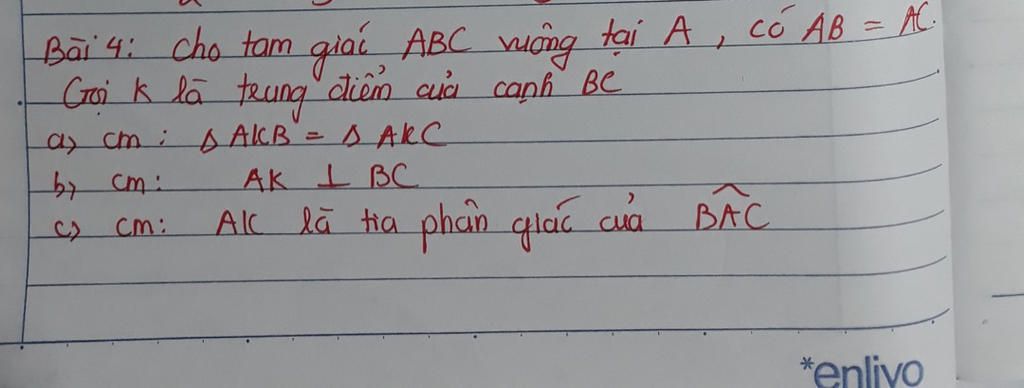 Bài 4: Cho tam giác ABC vuông tại A, có AB = AC.
Gọi K là trung điểm của cạnh BC
a) cm: Δ AKB = Δ AKC
b) cm: AK ⊥ BC
c) cm: AK là tia phân giác của \widehat{BAC}
*enlivo